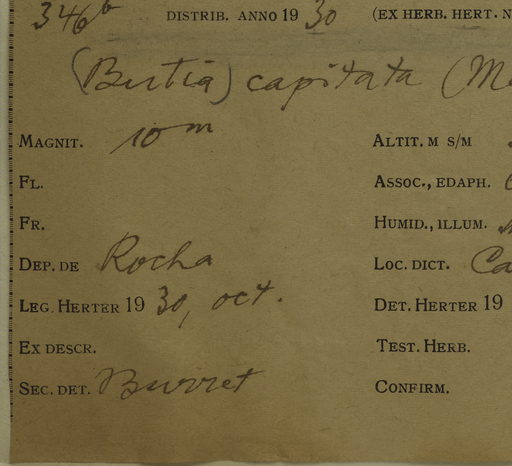 346b DISTRIB. ANNO 1930 (EX HERB. HERT.
(Butia) capitata
MAGNIT. 10 m ALTIT. M S/M
FL. ASSOC., EDAPH.
FR. HUMID., ILLUM.
DEP. DE Rocha LOC. DICT. Ca
LEG. HERTER 1930, oct. DET. HERTER 19
EX DESCR. TEST. HERB.
SEC. DET. Burret CONFIRM.